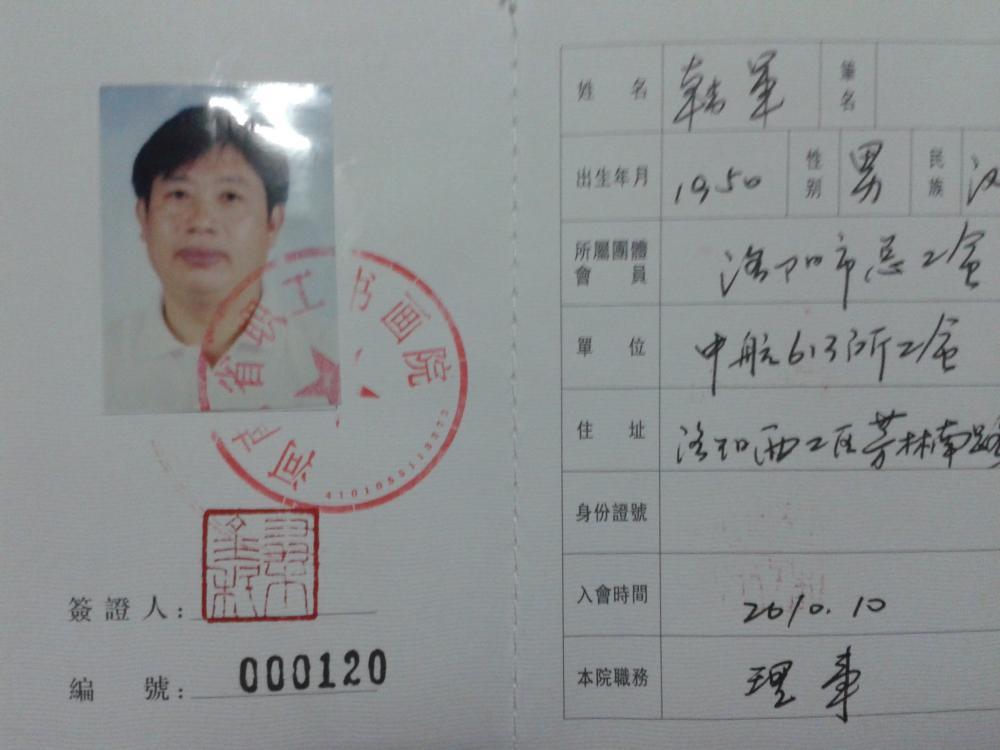 河南省职工书画院
4101055113272
簽證人:
編號: 000120
姓名 韩军 筆名
出生年月 1950 性别 男 民族 汉
所屬團體會員 洛阳市总工会
單位 中航613所工会
住址 洛阳西工区芳林南路
身份證號
入會時間 2010.10
本院職務 理事